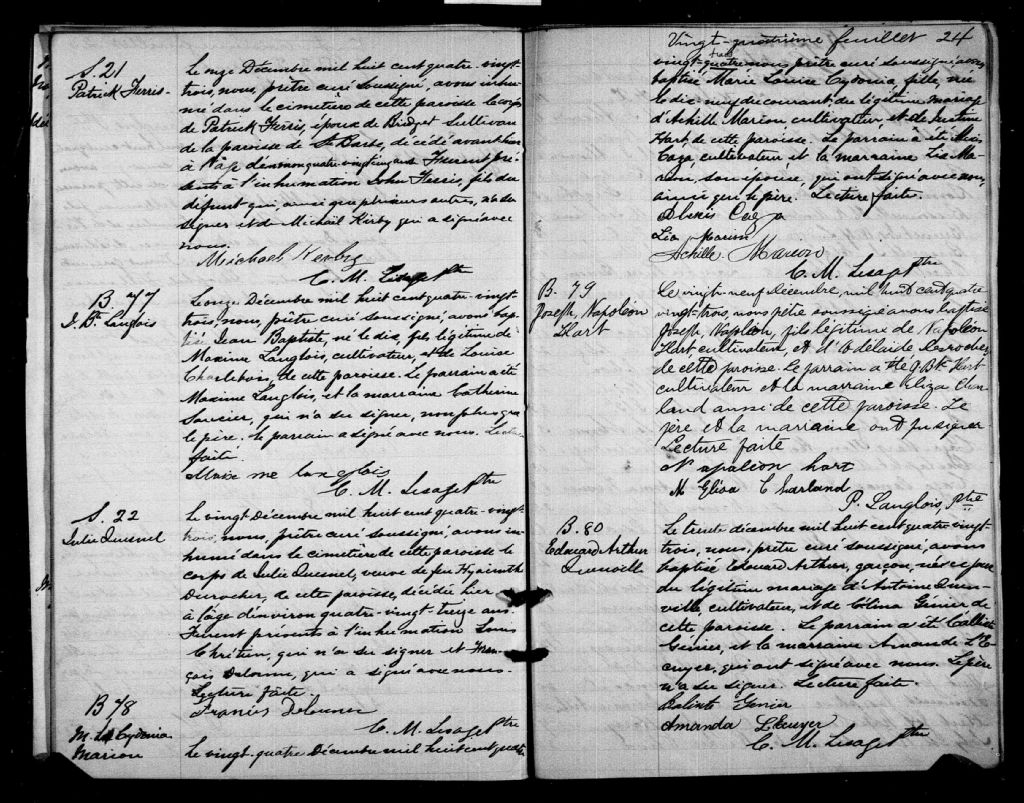 S. 21
Patrick Ferris
Le onze Décembre mil huit cent quatre-vingt-
trois, nous, prêtre curé soussigné, avons inhu-
mé dans le cimetière de cette paroisse le corps
de Patrick Ferris, époux de Bridget Sullivan
de la paroisse de St Barbe, décédé avant hier
à l'âge d'environ quatre-vingt-cinq ans. Furent pré-
sents à l'inhumation John Ferris, fils du
défunt qui, ainsi que plusieurs autres, n'a su
signer et de Michaël Kirby qui a signé avec
nous.
Michael Kerby
C. M. Lesage Ptre
B 77
J. Bte Langlois
Le onze Décembre mil huit cent quatre-vingt-
trois, nous, prêtre curé soussigné, avons bap-
tisé Jean Baptiste, né le dix, fils légitime de
Maxime Langlois, cultivateur, et de Louise
Charlebois, de cette paroisse. Le parrain a été
Maxime Langlois, et la marraine Catherine
qui n'a su signer, non plus que
le père. Le parrain a signé avec nous. Lecture
faite.
Maxime Langlois
C. M. Lesage Ptre
S. 22
Julie Quesnel
Le vingt Décembre mil huit cent quatre-vingt-
trois, nous, prêtre curé soussigné, avons in-
humé dans le cimetière de cette paroisse le
corps de Julie Quesnel, veuve de feu Hyacinthe
Durocher, de cette paroisse, décédée hier
à l'âge d'environ quatre-vingt-treize ans.
Furent présents à l'inhumation Louis
Chrétien, qui n'a su signer et Fran-
çois Delorme, qui a signé avec nous.
Lecture faite.
Francis Delorme
C. M. Lesage Ptre
B 78
M. Le Cydonia
Marion
Le vingt-quatre Décembre mil huit cent quatre-
Vingt-quatrième feuillet 24
trois
vingt-quatre nous, prêtre curé soussigné, avons
baptisé Marie Louise Cydonia, fille, née
le dix neuf du courant, du légitime mariage
d'Achille Marion cultivateur et de
Hart, de cette paroisse. Le parrain a été Alexis
Caza, cultivateur et la marraine Lia Ma-
rion, son épouse, qui ont signé avec nous,
ainsi que le père. Lecture faite.
Alexis Caza
Lia Marion
Achille Marion
C. M. Lesage Ptre
B. 79
Joseph, Napoléon
Hart
Le vingt-neuf décembre, mil huit cent quatre
vingt-trois, nous prêtre soussigné avons baptisé
Joseph, Napoléon, fils légitime de Napoléon
Hart cultivateur, et d'Adélaide Desroches,
de cette paroisse. Le parrain a été J Bte Hart
cultivateur et la marraine Eliza Char-
land aussi de cette paroisse. Le
père et la marraine ont pu signer
Lecture faite
Napoleon hart
M Elisa Charland
P. Langlois, Ptre
B. 80
Edouard Arthur
Quenville
Le trente décembre mil huit cent quatre vingt-
trois, nous, prêtre curé soussigné, avons
baptisé Edouard Arthur, garçon, né ce jour
du légitime mariage d'Antoine Quen-
ville, cultivateur, et de Célina Génier de
cette paroisse. Le parrain a été Calliste
Génier, et la marraine Amanda L'E-
cuyer, qui ont signé avec nous. Le père
n'a su signer. Lecture faite.
Calixte Genier
Amanda L'Ecuyer
C. M. Lesage Ptre